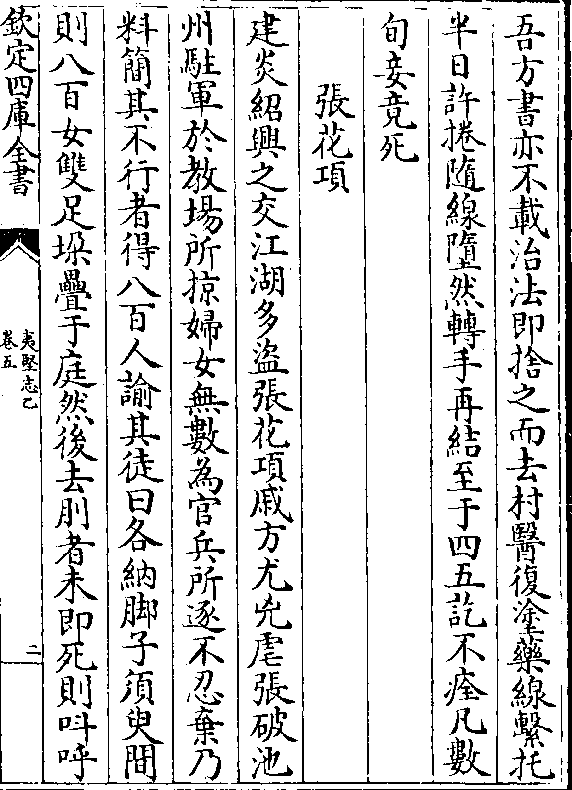 吾方書亦不載治法即捨之而去村醫復塗藥線繫托
半日許捲隨線墮然轉手再結至于四五訖不痊凡數
旬妾竟死
張花項
建炎紹興之交江湖多盜張花項戚方尤兇虐張破池
州駐軍於教場所掠婦女無數為官兵所逐不忍棄乃
料簡其不行者得八百人諭其徒曰各納脚子須臾間
則八百女雙足垜疊于庭然後去刖者未即死則呌呼
欽定四庫全書
夷堅志乙
卷五
二